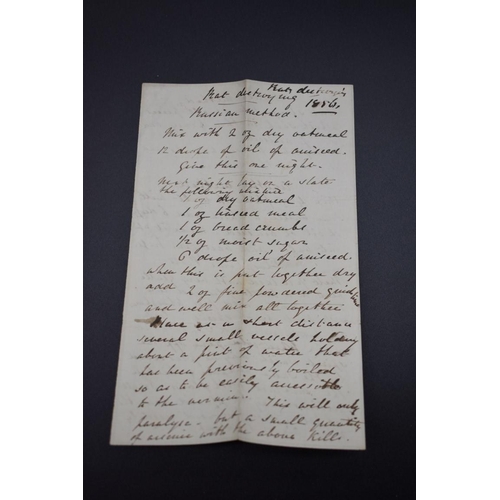 Rat destroying Rat destroying
1886,
Russian method.
Mix with 2 oz dry oatmeal
12 drops of oil of aniseed.
Give this one night.
Next night lay on a slate
the following mixture
dry oatmeal
1 oz linseed meal
1 oz bread crumbs
1/2 oz moist sugar
6 drops oil of aniseed.
when this is put together dry
add 2 oz fine powdered
and well mix all together
Place at a short distance
several small vessels holding
about a pint of water that
has been previously boiled
so as to be easily accessible
to the vermin. This will only
paralyse. but a small quantity
of arsenic with the above Kills.